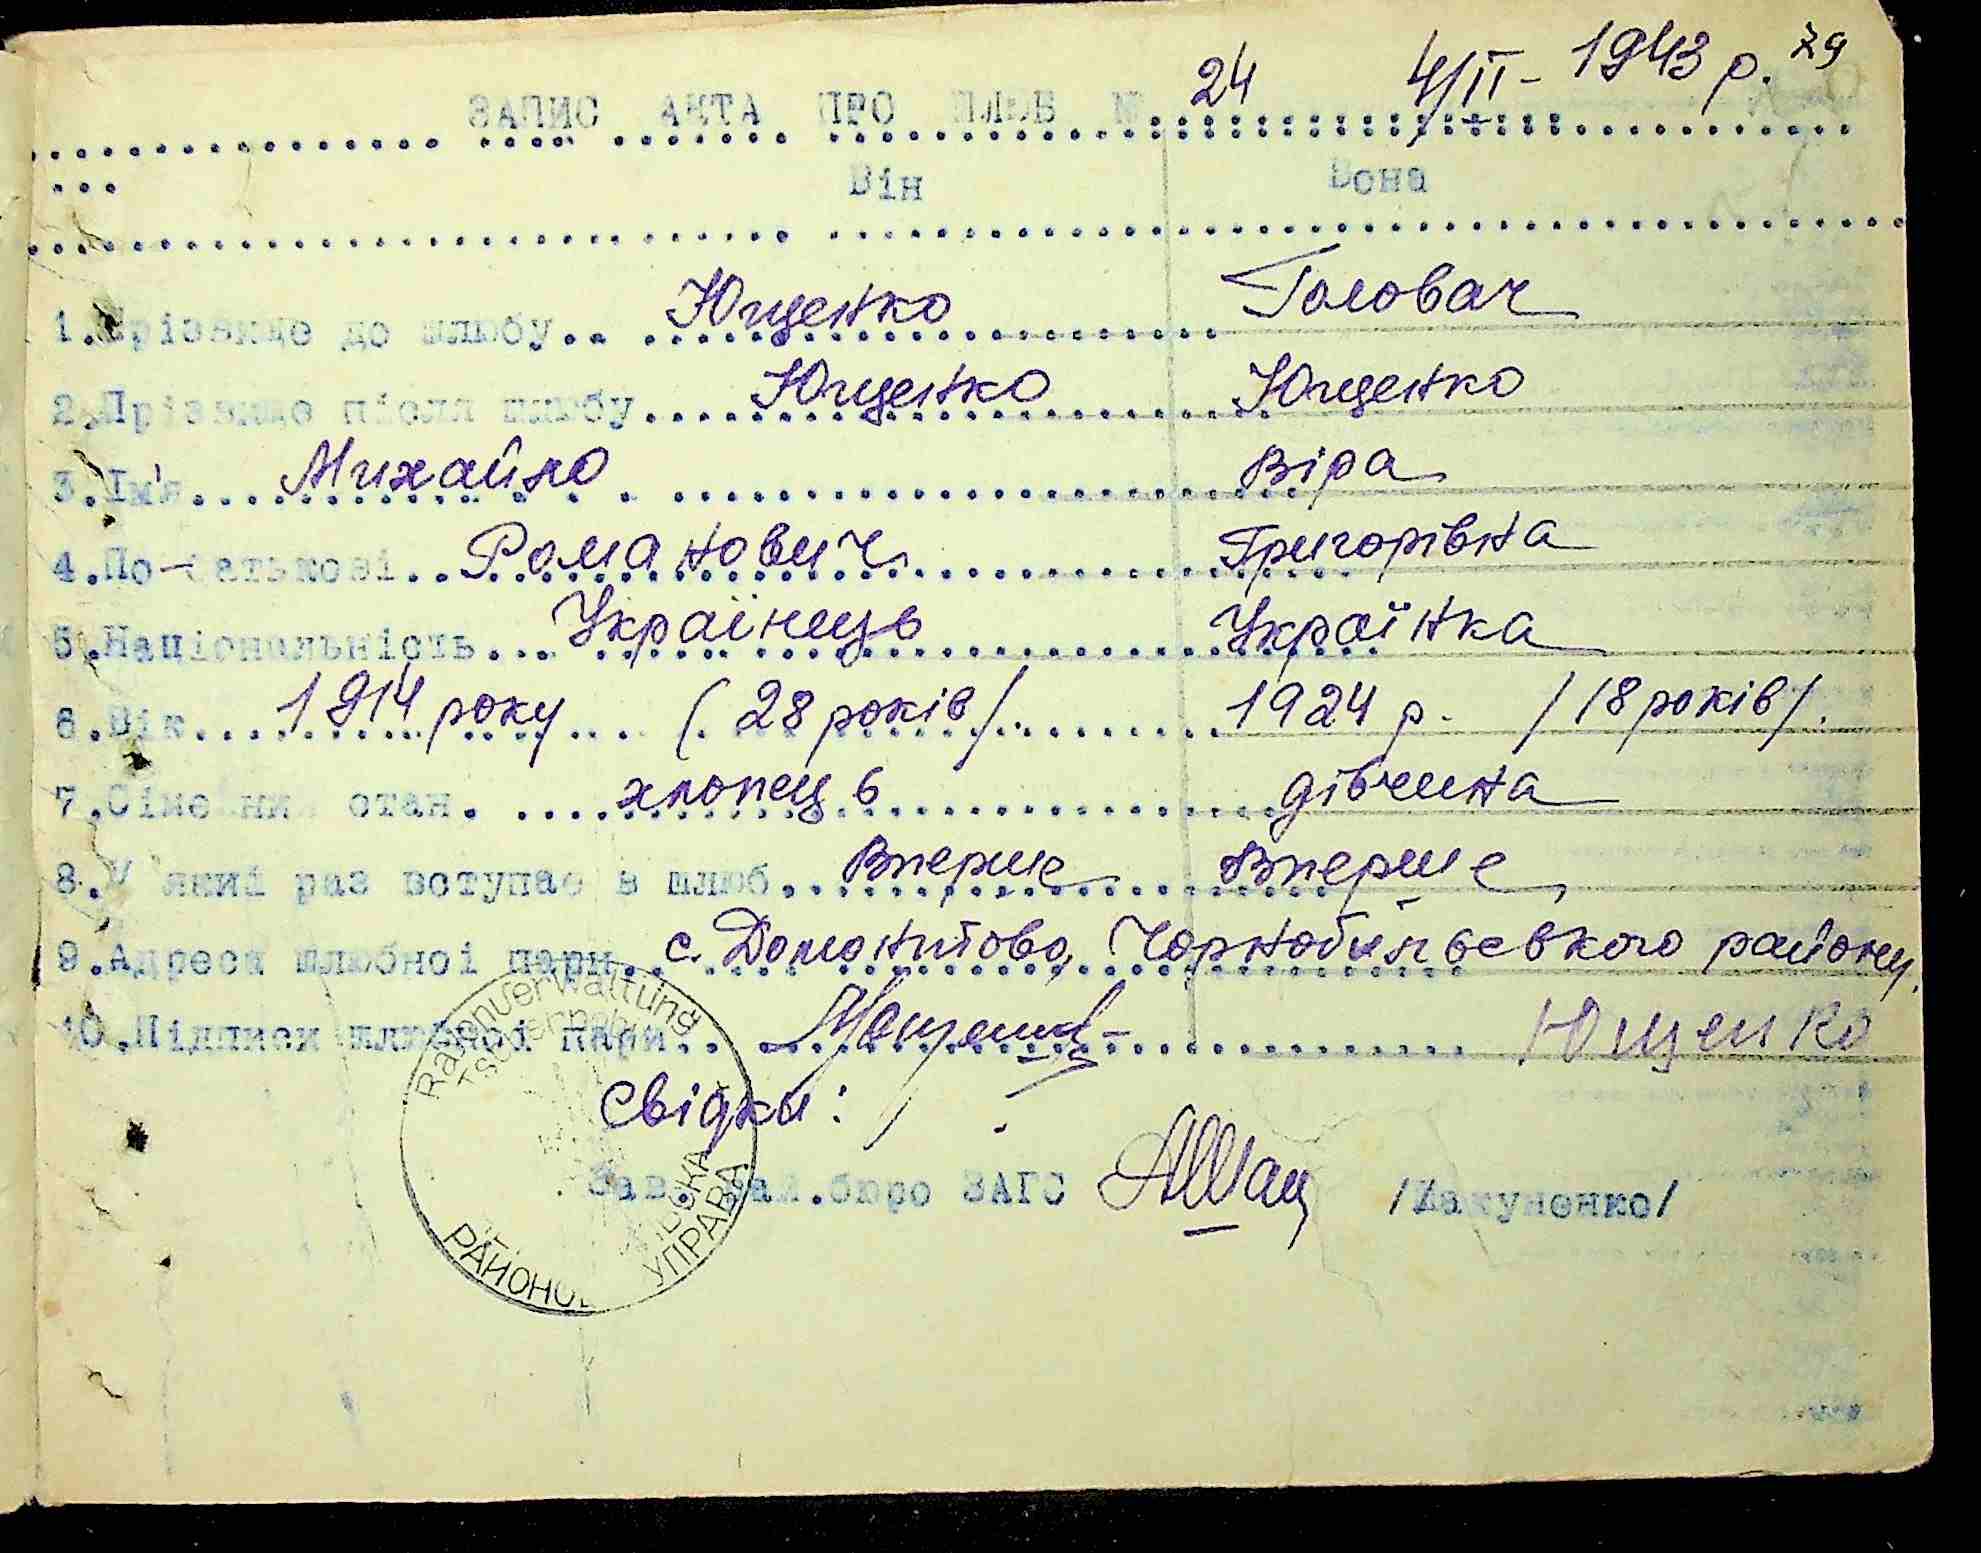 79
ЗАПИС АКТА ПРО ШЛЮБ № 24 4/II - 1943 р.
Він Вона
1.Прізвище до шлюбу.. Ющенко Головач
2.Прізвище після шлюбу.. Ющенко Ющенко
3.Ім'я... Михайло Віра
4.По-батькові.. Романович Григорівна
5.Національність... Українець Українка
6.Вік... 1914 року (28 років/. 1924 р. /18 років/.
7.Сімейний стан. хлопець дівчина
8.У який раз вступає в шлюб. Вперше Вперше
9.Адреса шлюбної пари.. с. Домонтово, Чорнобильсвкого району.
10.Підписи шлюбної пари.. Ющенко
Свідки:
Зав. рай.бюро ЗАГС
Rajonverwaltung
РАЙОНО
УПРАВА